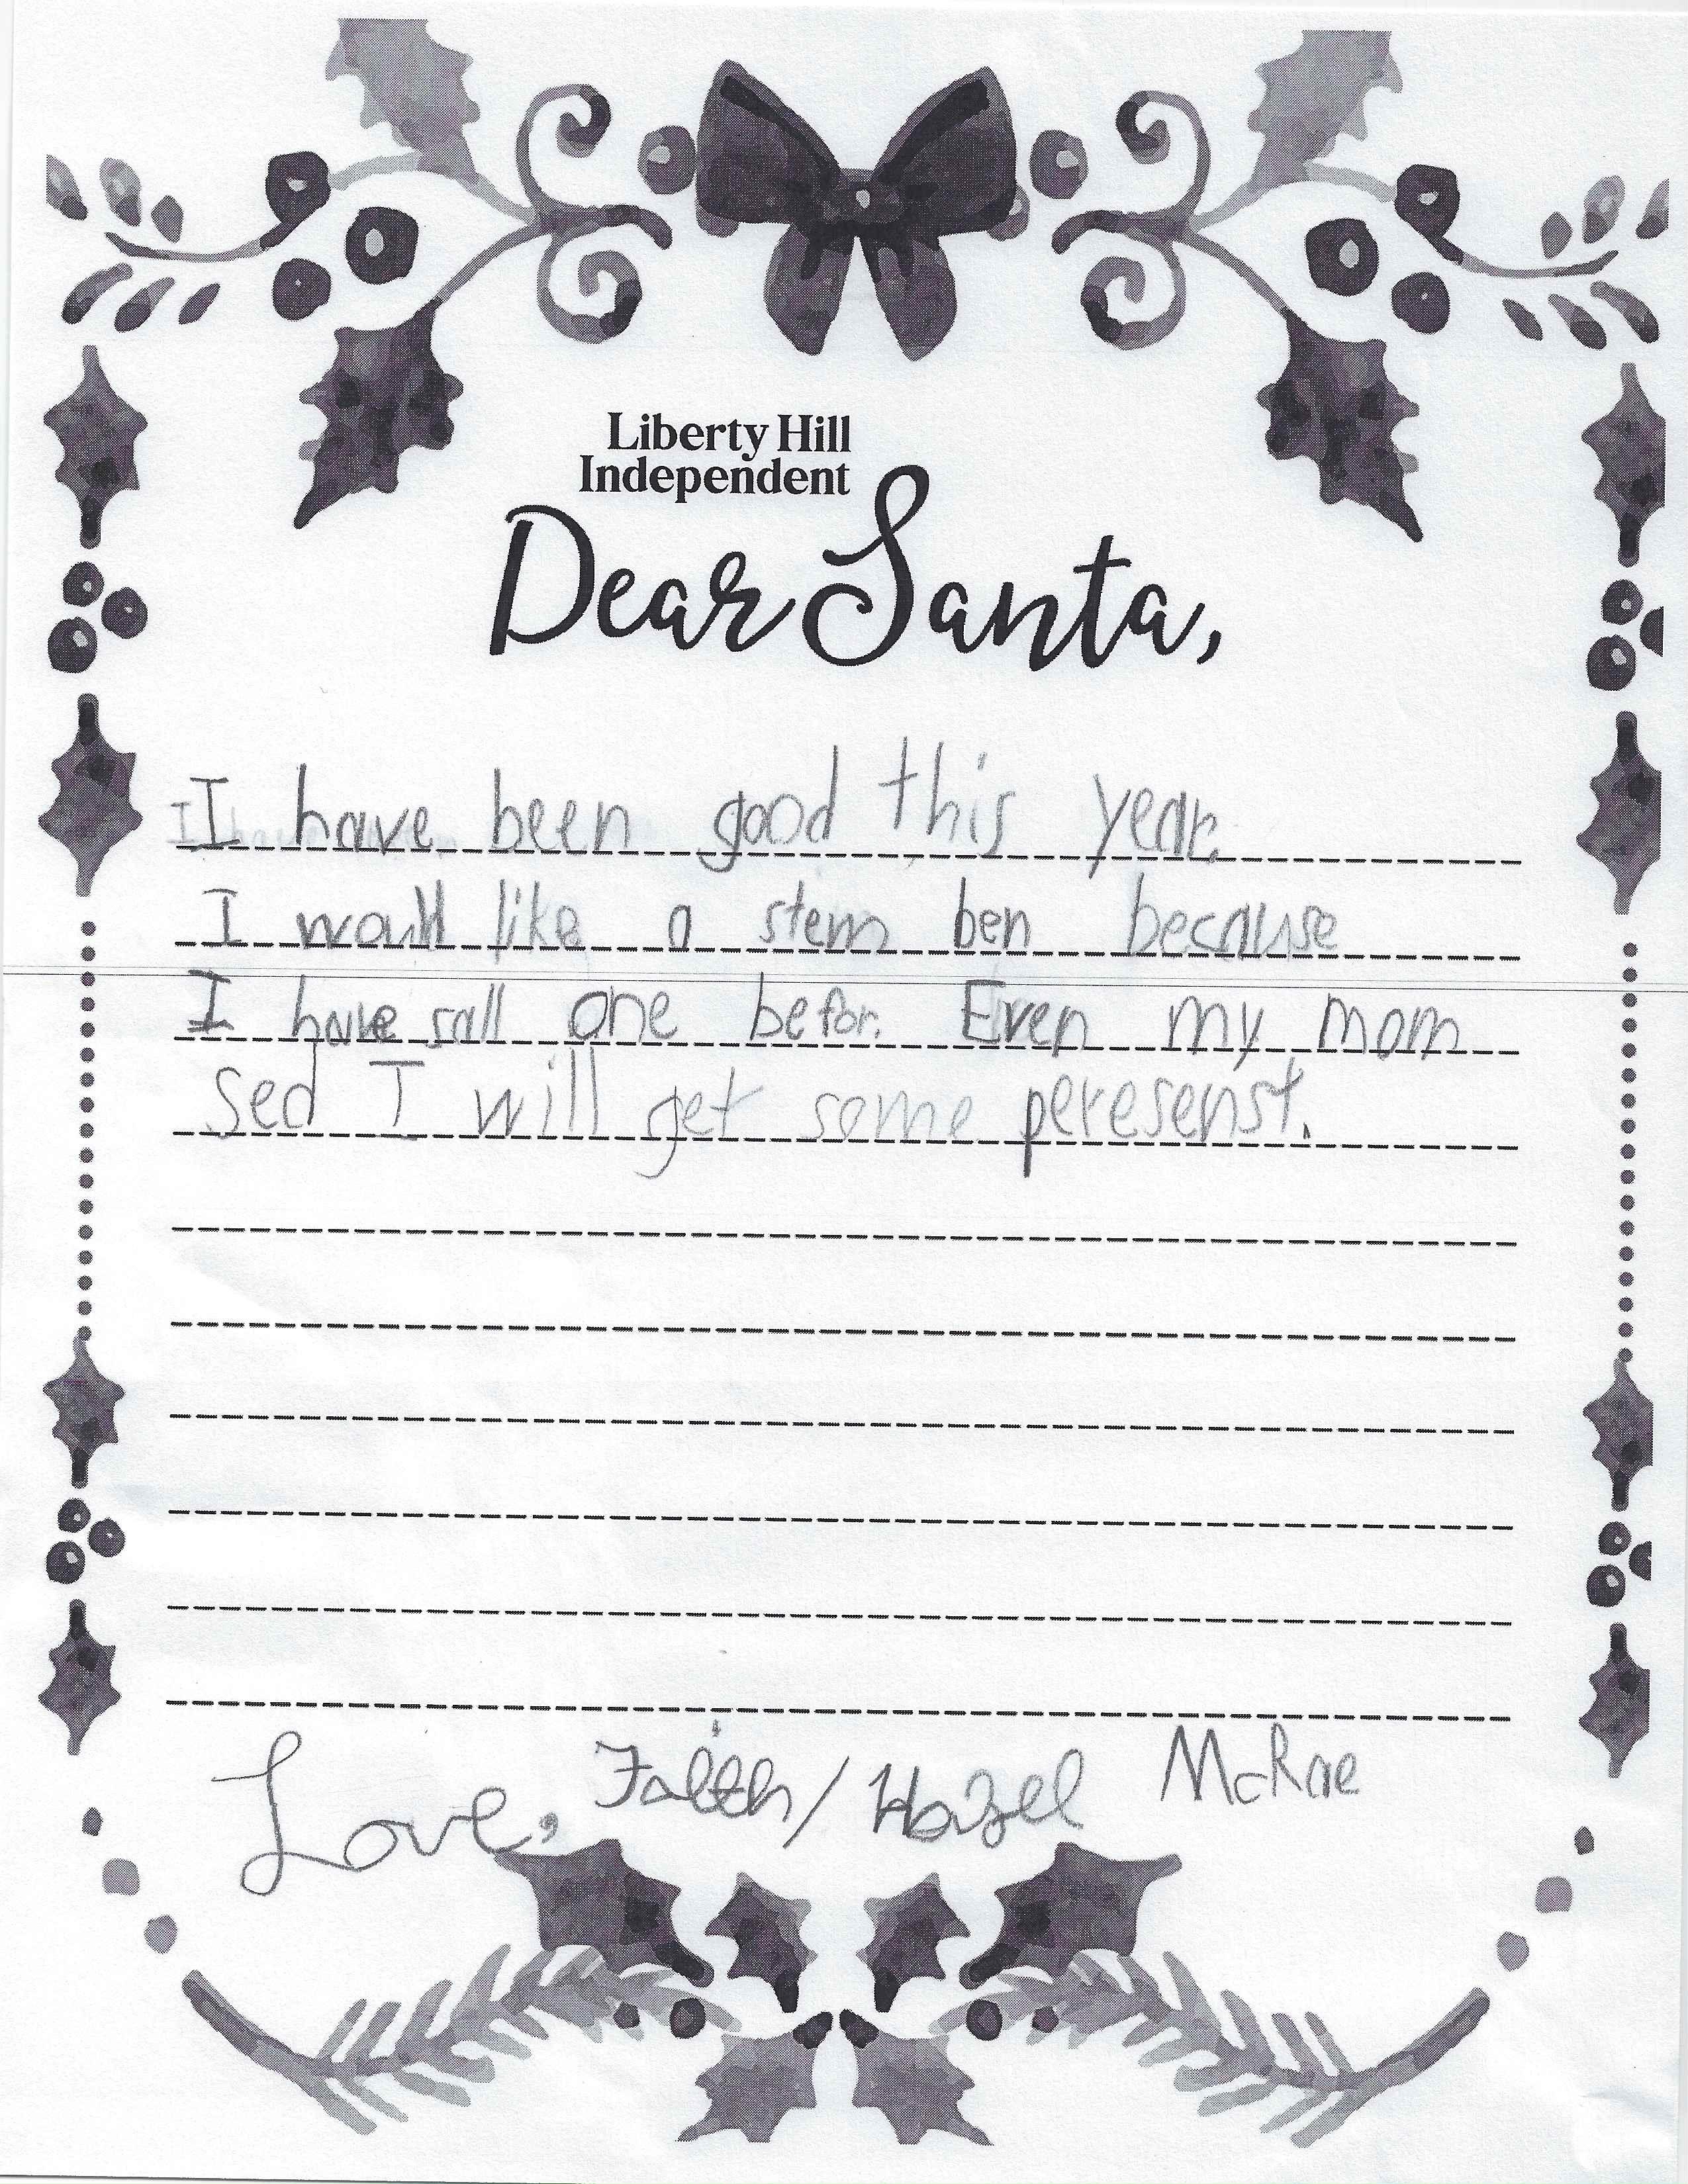 Liberty Hill
Independent
Dear Santa,
I have been good this year.
I would like a stem ben because
I have sall one befor. Even my mom
sed I will get some peresenst.
Love, Faith/Hazel McRae